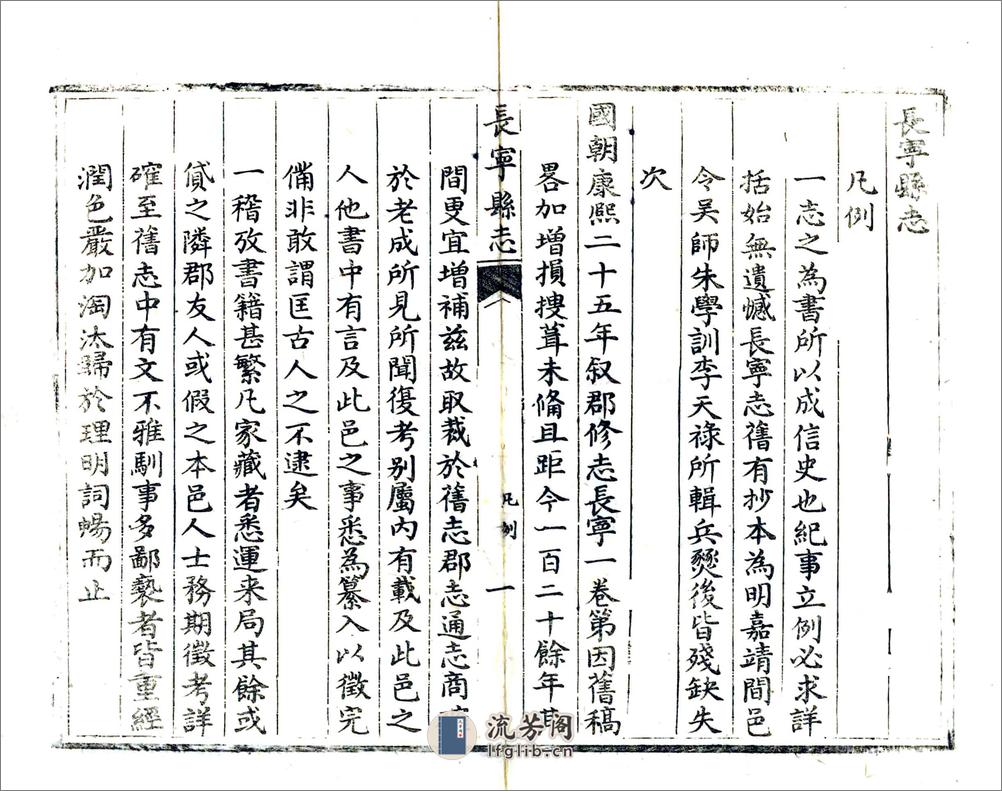 長寧縣志
凡例
一志之為書所以成信史也紀事立例必求詳
括始無遺憾長寧志舊有抄本為明嘉靖間邑
令吴師朱學訓李天祿所輯兵燹後皆殘缺失
次
國朝康熙二十五年叙郡修志長寧一卷第因舊稿
畧加增損搜葺未偹且距今一百二十餘年其
長寧縣志 凡例 一
間更宜增補兹故取裁於舊志郡志通志商
於老成所見所聞復考别屬内有載及此邑之
人他書中有言及此邑之事悉為纂入以徵完
偹非敢謂匡古人之不逮矣
一稽攷書籍甚繁凡家藏者悉運来局其餘或
貸之隣郡友人或假之本邑人士務期徵考詳
確至舊志中有文不雅馴事多鄙褻者皆重經
潤色嚴加淘汰歸於理明詞暢而止
流芳阁
lfglib.cn